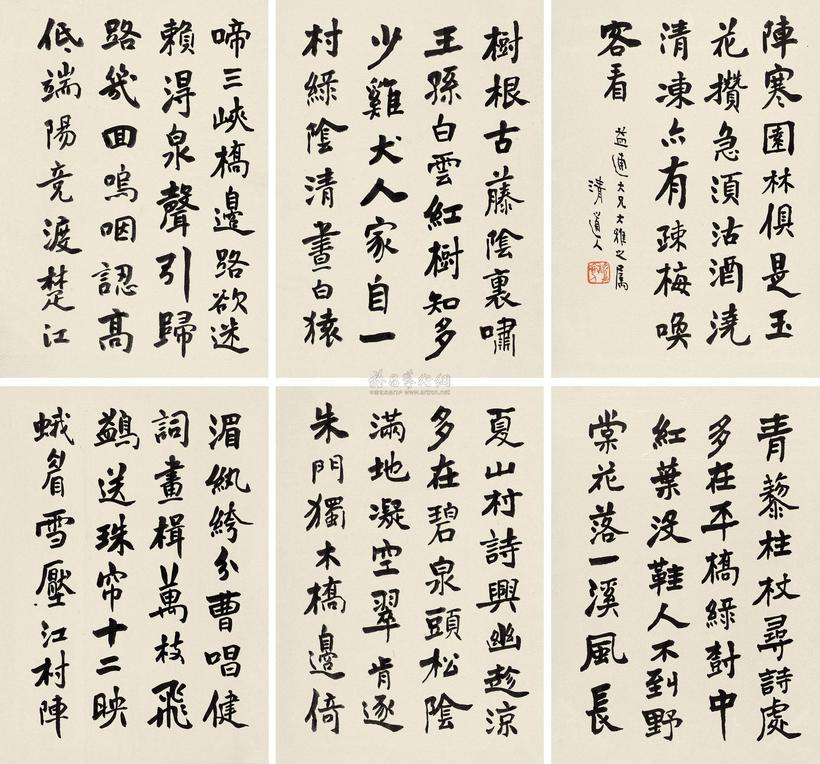 青藜柱杖尋詩處
多在平橋綠樹中
紅葉没鞋人不到野
棠花落一溪風長
夏山村詩興幽趁涼
多在碧泉頭松陰
滿地凝空翠肯逐
朱門獨木橋邊倚
樹根古藤陰裏嘯
王孫白雲紅樹知多
少雞犬人家自一
村緑陰清晝白猿
啼三峽橋邊路欲迷
賴淂泉聲引歸
路幾回嗚咽認高
低端陽競渡楚江
湄紈絝分曹唱健
詞畫楫萬枝飛
鷁送珠帘十二映
蛾眉雪壓江村陣
陣寒園林俱是玉
花攢急須沽酒澆
清凍亦有疎梅喚
客看
益通大兄大雅之屬
清道人